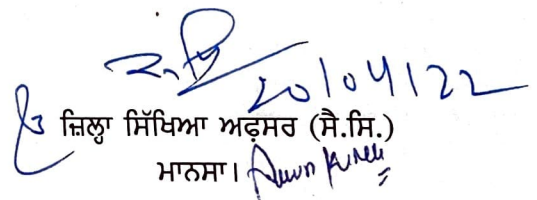 20/04/22
ਜ਼ਿਲ੍ਹਾ ਸਿੱਖਿਆ ਅਫ਼ਸਰ (ਸੈ.ਸਿ.)
ਮਾਨਸਾ।